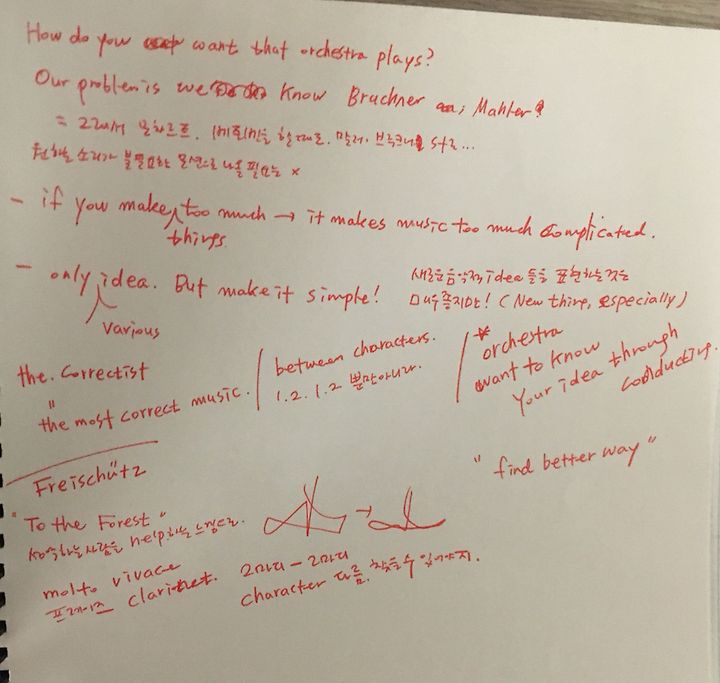 How do you want that orchestra plays?
Our problem is we know Bruckner, Mahler?
= 그래서 모차르트, 베버를 할 때도, 말러, 브루크너
원하는 소리가 불필요한 모션으로 나올 필요는 x
- if you make things too much → it makes music too much complicated.
- only various idea. But make it simple!
새로운 음악적 idea 들을 표현하는 것은
매우 좋지만! (New thing, especially)
the. correctist
"
the most correct music.
between characters.
1.2.1.2 뿐만아니라.
* orchestra
want to know
your idea through
conducting.
"find better way"
Freischütz
"To the Forest"
하는 사람을 help하는 느낌으로.
molto vivace
프레이즈 clarinet.
2마디 - 2마디
character 다름. 찾을 수 있어야지.